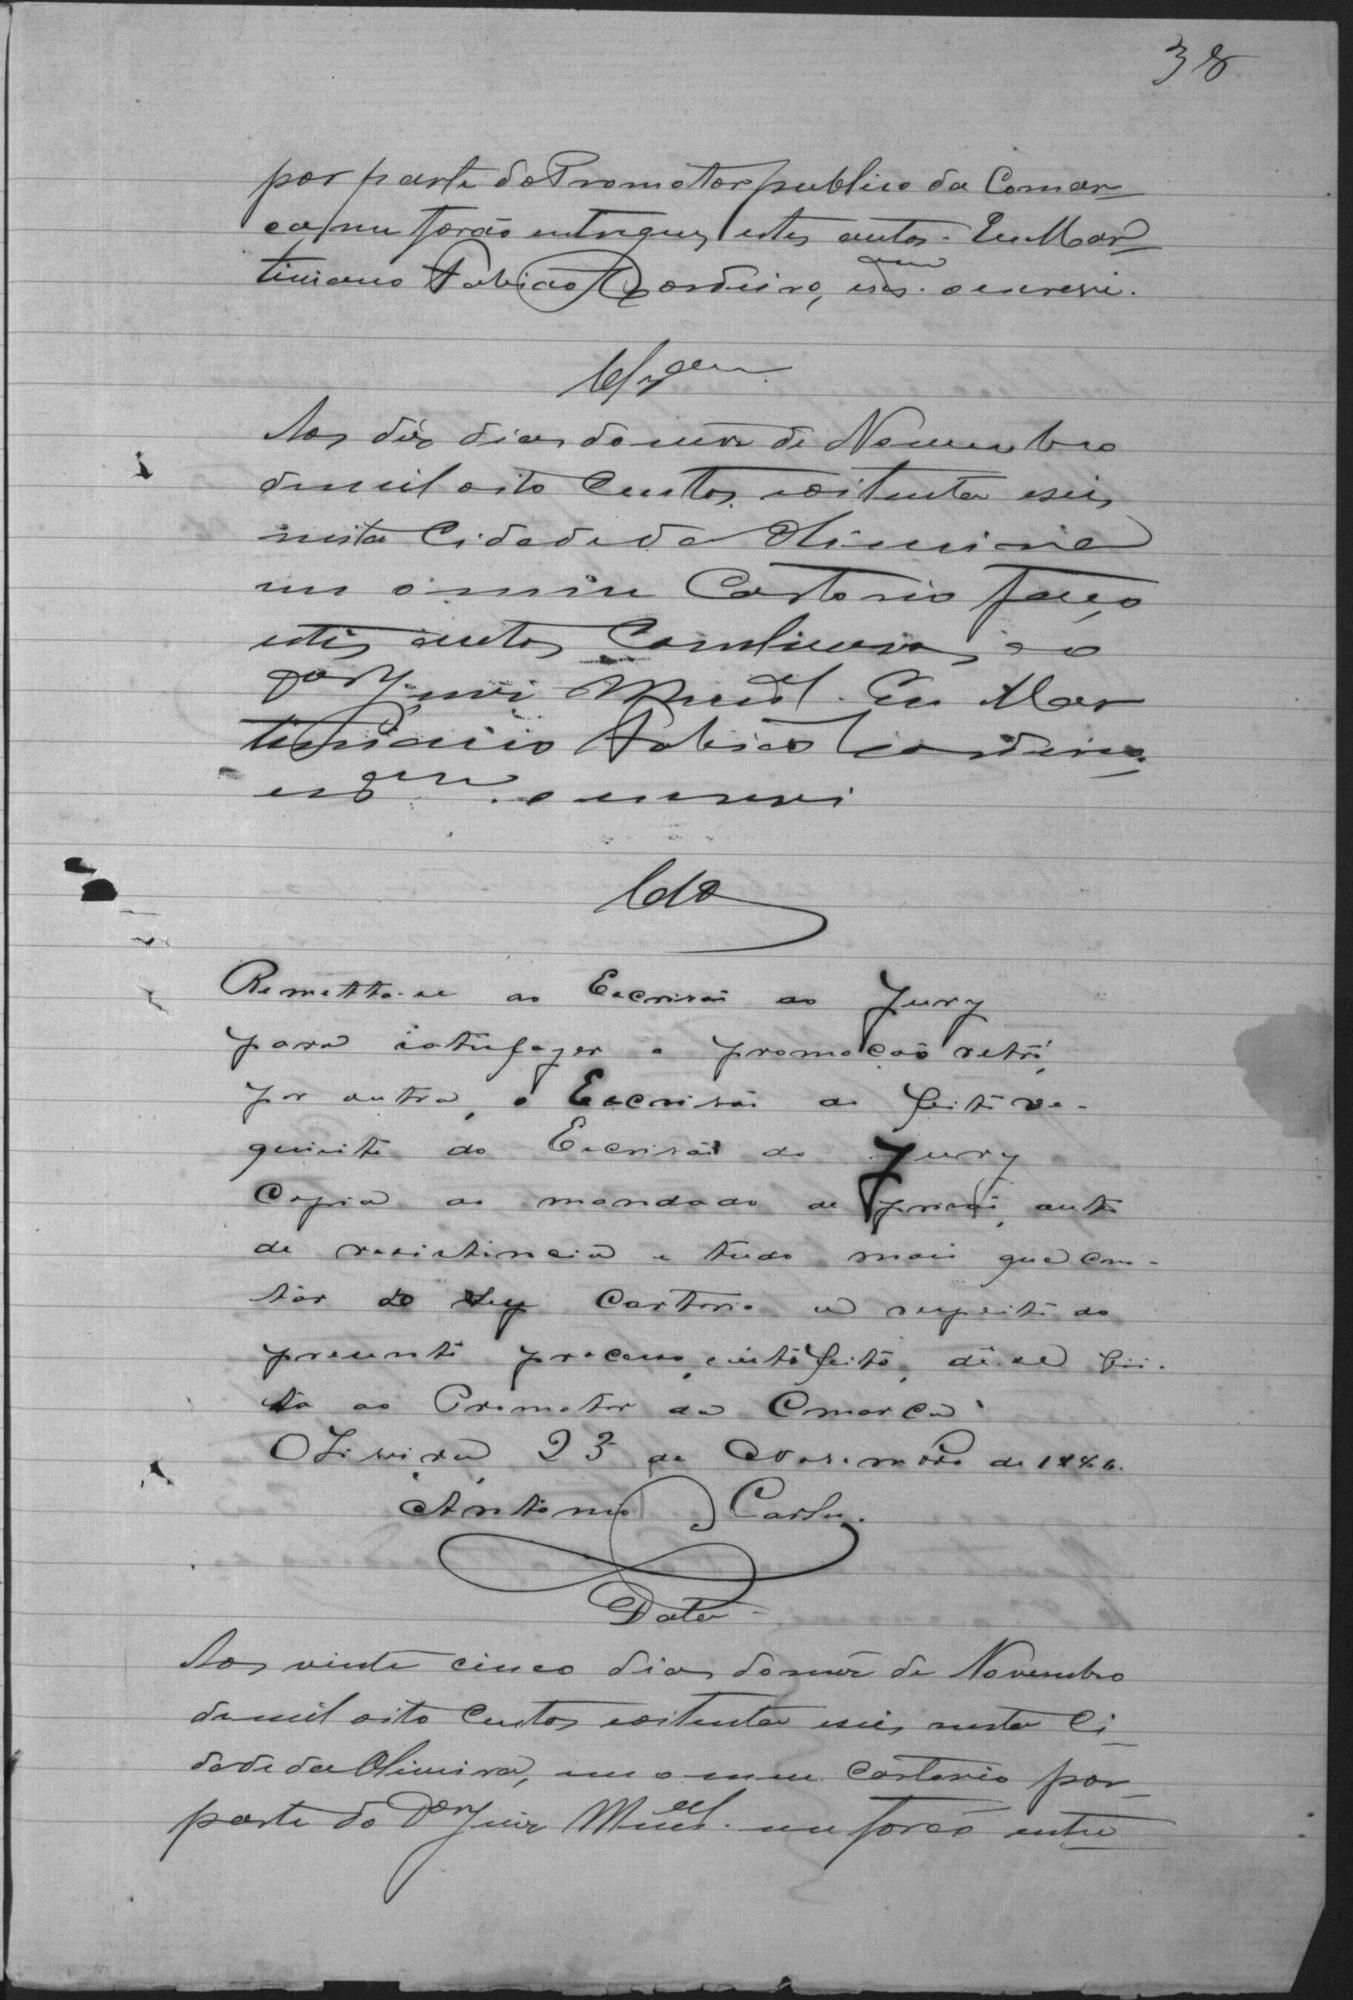 38
por parte do Promotor publico da Comar-
ca, me forão entregues estes autos. Eu Mar-
tiniano Fabião Cordeiro, escm. o escrevi.
Clsam
Aos dez dias do mez de Novembro
de mil oito Centos e oitenta e seis,
nesta Cidade da Oliveira
em o meu Cartorio faço
estes autos Conclusos, ao
Dor Juiz Munal. Eu Mar
tiniano Fabião Cordeiro,
escam. o escrevi
Cdo
Remetta-se ao Escrivão do Jury
para satisfazer a promoção retro,
por outra, o Escrivão do feito re-
quisite do Escrivão do Jury
Copia do mandado de prisão, auto
de resistencia e tudo mais que cons-
tar do seu Cartorio a respeito do
presente processo, e isto feito, dê-se vis-
ta ao Promotor da Comarca.
Oliveira, 23 de Novembro de 1886.
Antonio Carlos.
Data
Aos vinte cinco dias do mez de Novembro
de mil oito Centos e oitenta e seis, nesta Ci-
dade da Oliveira, em o meu Cartorio por
parte do Dor Juiz Munal. me forão entre